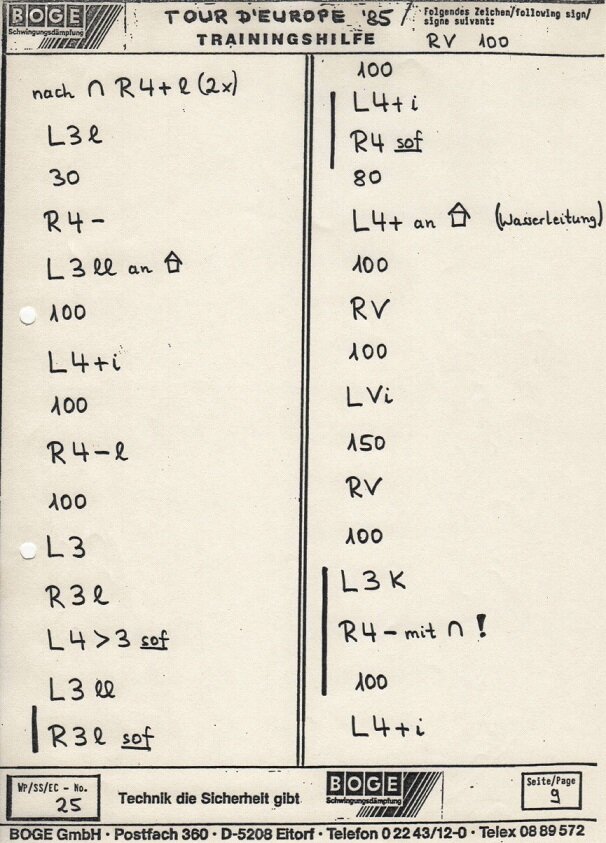 BOGE
Schwingungsdämpfung
TOUR D'EUROPE '85
TRAININGSHILFE
Folgendes Zeichen/following sign/
signe suivant:
RV 100
nach ∩ R4+l (2x)
L3l
30
R4-
L3ll an ⇧
100
L4+i
100
R4-l
100
L3
R3l
L4>3 sof
L3ll
R3l sof
100
L4+i
R4 sof
80
L4+ an ⇧ (Wasserleitung)
100
RV
100
LVi
150
RV
100
L3K
R4- mit ∩ !
100
L4+i
WP/SS/EC - No.
25
Technik die Sicherheit gibt
BOGE
Schwingungsdämpfung
Seite/Page
9
BOGE GmbH · Postfach 360 · D-5208 Eitorf · Telefon 0 22 43/12-0 · Telex 08 89 572